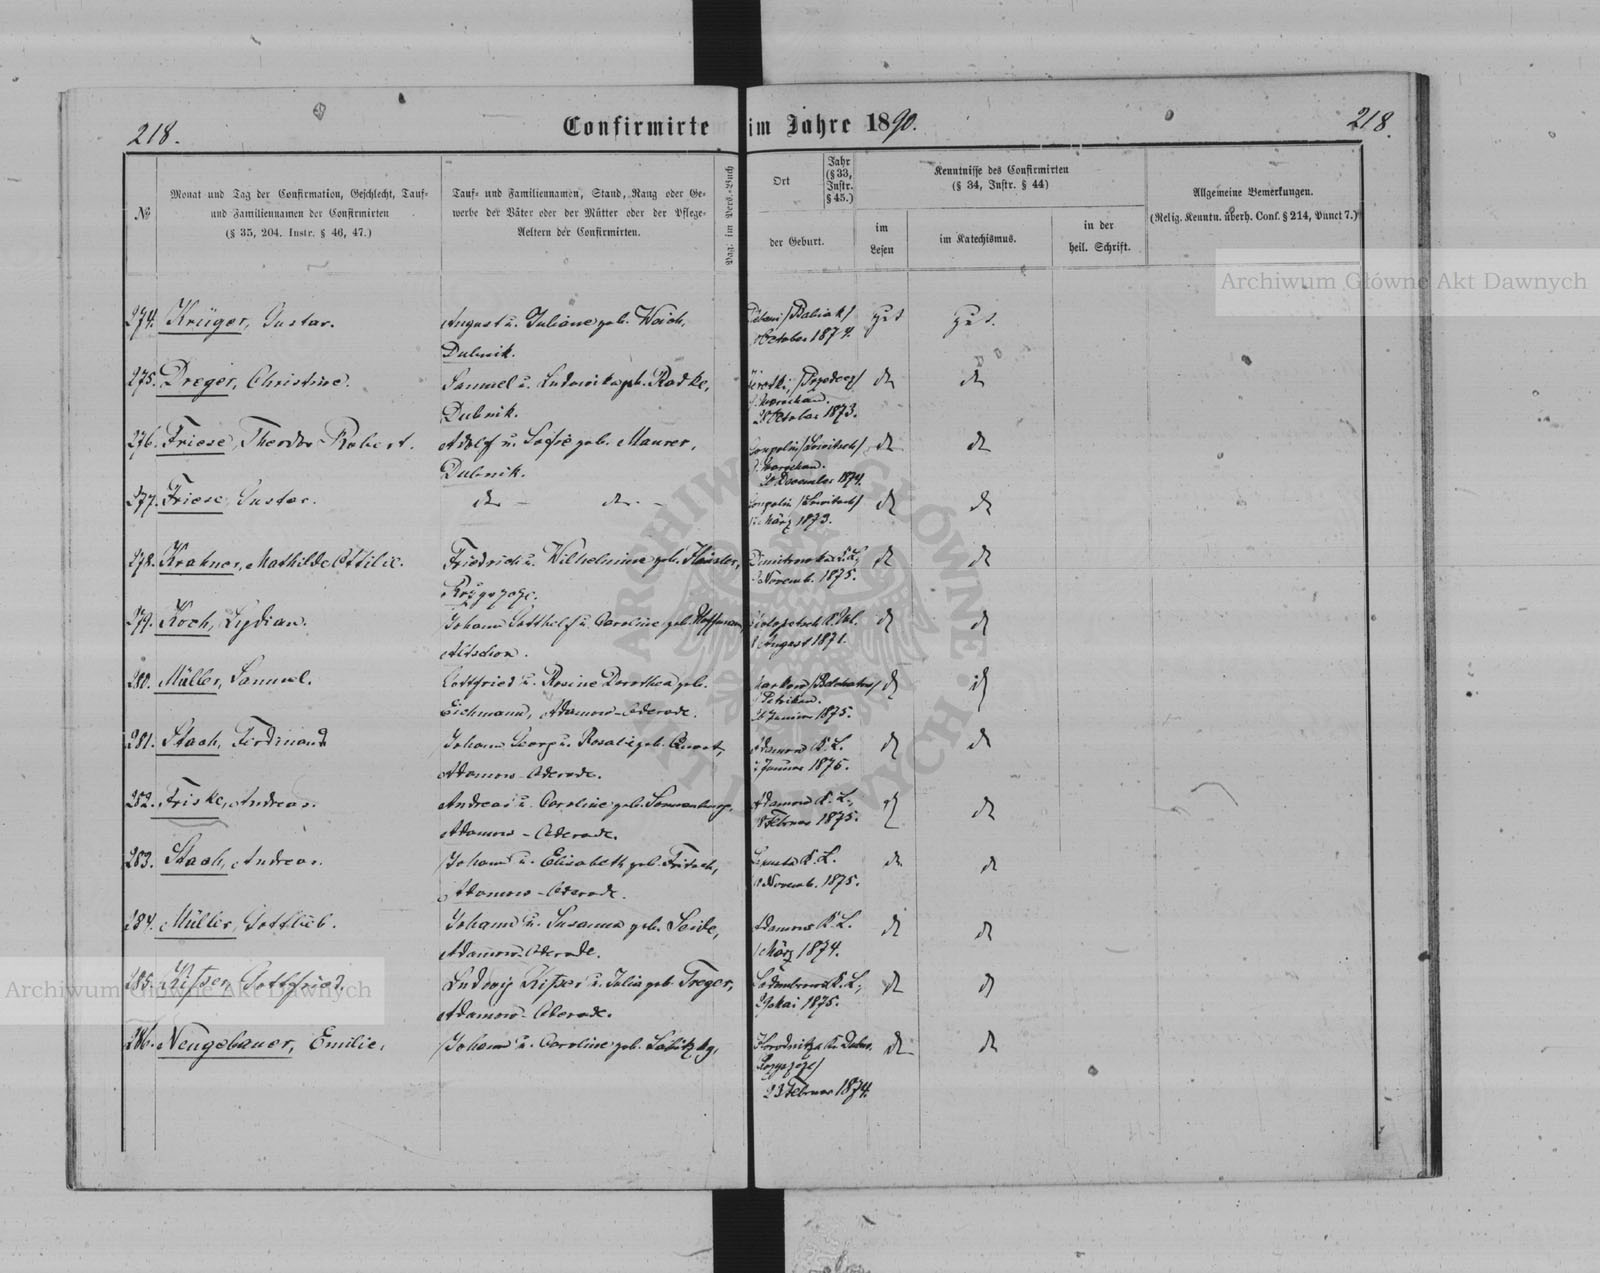 218.
Confirmirte im Jahre 1890.
218.
№
Monat und Tag der Confirmation, Geschlecht, Tauf-
und Familiennamen der Confirmirten
(§ 35, 204. Instr. § 46, 47.)
Tauf- und Familiennamen, Stand, Rang oder Ge-
werbe der Väter oder der Mütter oder der Pflege-
Aeltern der Confirmirten.
Pag. im Pers.-Buch
Ort
Jahr
(§ 33,
Instr.
§ 45.)
der Geburt.
Kenntnisse des Confirmirten
(§ 34, Instr. § 44)
im
Lesen
im Katechismus.
in der
heil. Schrift.
Allgemeine Bemerkungen.
(Relig. Kenntn. überh. Conf. § 214, Punct 7.)
Archiwum Główne Akt Dawnych
274. Krüger, Gustav.
August u. Juliane geb.
Dubnik.
October 1874.
gut
gut.
275. Dreger, Christine.
Samuel u. Ludowika geb. Radke,
Dubnik.
October 1873.
do
do
276. Friese, Theodor Robert.
Adolf u. Sofie geb. Maurer,
Dubnik.
December 1874.
do
do
277. Friese, Gustav.
do – do. –
März 1873.
do
do
278. Krahner, Mathilde Ottilie.
Friedrich u. Wilhelmine geb.
Novemb. 1875.
do
do
279. Koch, Lydia.
Johann Gotthelf u. Caroline geb. Hoffmann,
August 1871.
do
do
280. Müller, Samuel.
Gottfried u. Rosine Dorothea geb.
Eichmann, Adamow-Oderade.
Petrikau.
1875.
do
do
281. Stach, Ferdinand
Johann Georg u. Rosalie geb.
Adamow-Oderade.
Adamow K. L.
Januar 1876.
do
do
282. Friske, Andreas.
Andreas u. Caroline geb. Sonnenburg,
Adamow-Oderade.
Adamow K. L.,
Februar 1875.
do
do
283. Stach, Andreas.
Johann u. Elisabeth geb. Fritsch,
Adamow-Oderade.
K. L.
Novemb. 1875.
do
do
284. Müller, Gottlieb.
Johann u. Susanna geb. Seide,
Adamow-Oderade.
Adamow K. L.
März 1874.
do
do
285. Gottfried.
Ludwig u. Julia geb. Treger,
Adamow-Oderade.
K. L.,
Mai 1875.
do
do
286. Neugebauer, Emilie,
Johann u. Caroline geb.
23 Februar 1874.
do
do
Archiwum Główne Akt Dawnych
ARCHIWUM GŁÓWNE AKT DAWNYCH